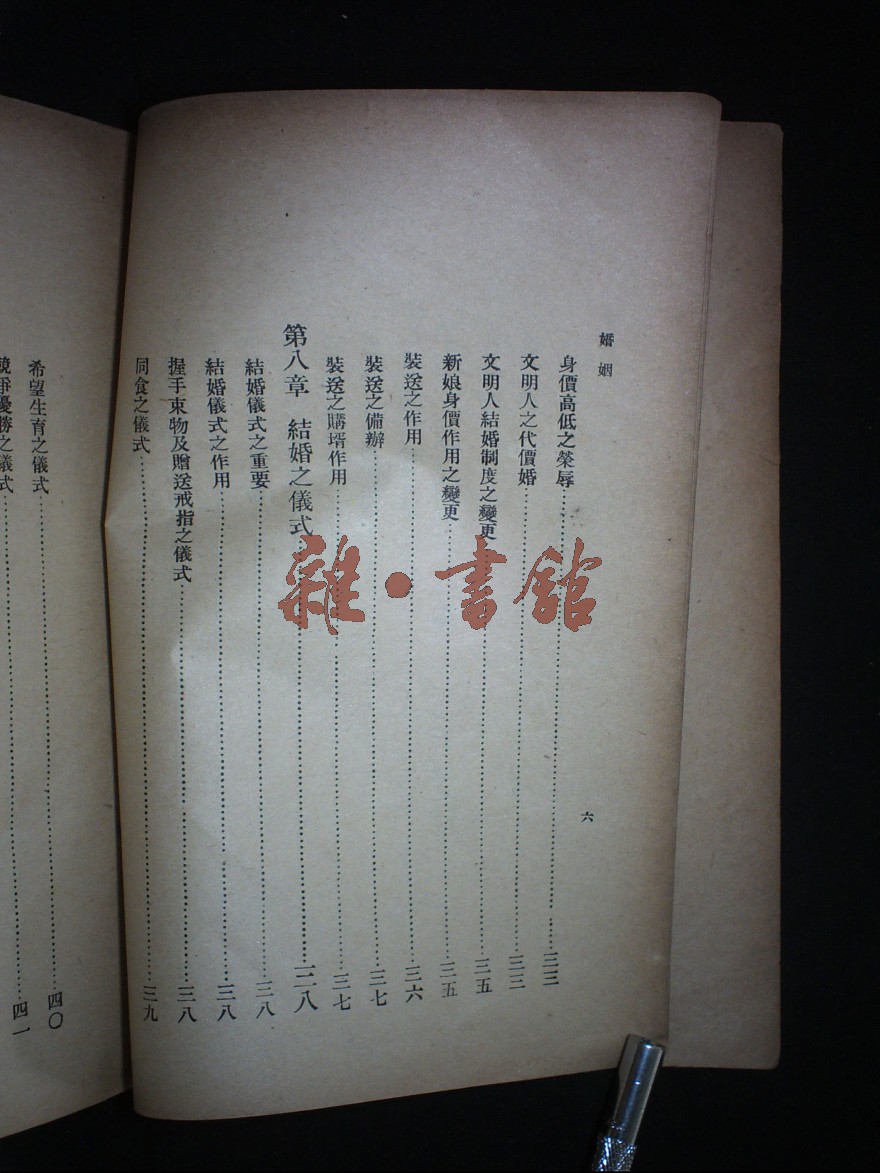 婚姻
六
身價高低之榮辱……三三
文明人之代價婚……三三
文明人結婚制度之變更……三五
新娘身價作用之變更……三五
裝送之作用……三六
裝送之備辦……三七
裝送之購壻作用……三七
第八章 結婚之儀式……三八
結婚儀式之重要……三八
結婚儀式之作用……三八
握手束物及贈送戒指之儀式……三八
同食之儀式……三九
希望生育之儀式……四〇
競爭優勝之儀式……四一
雜·書館